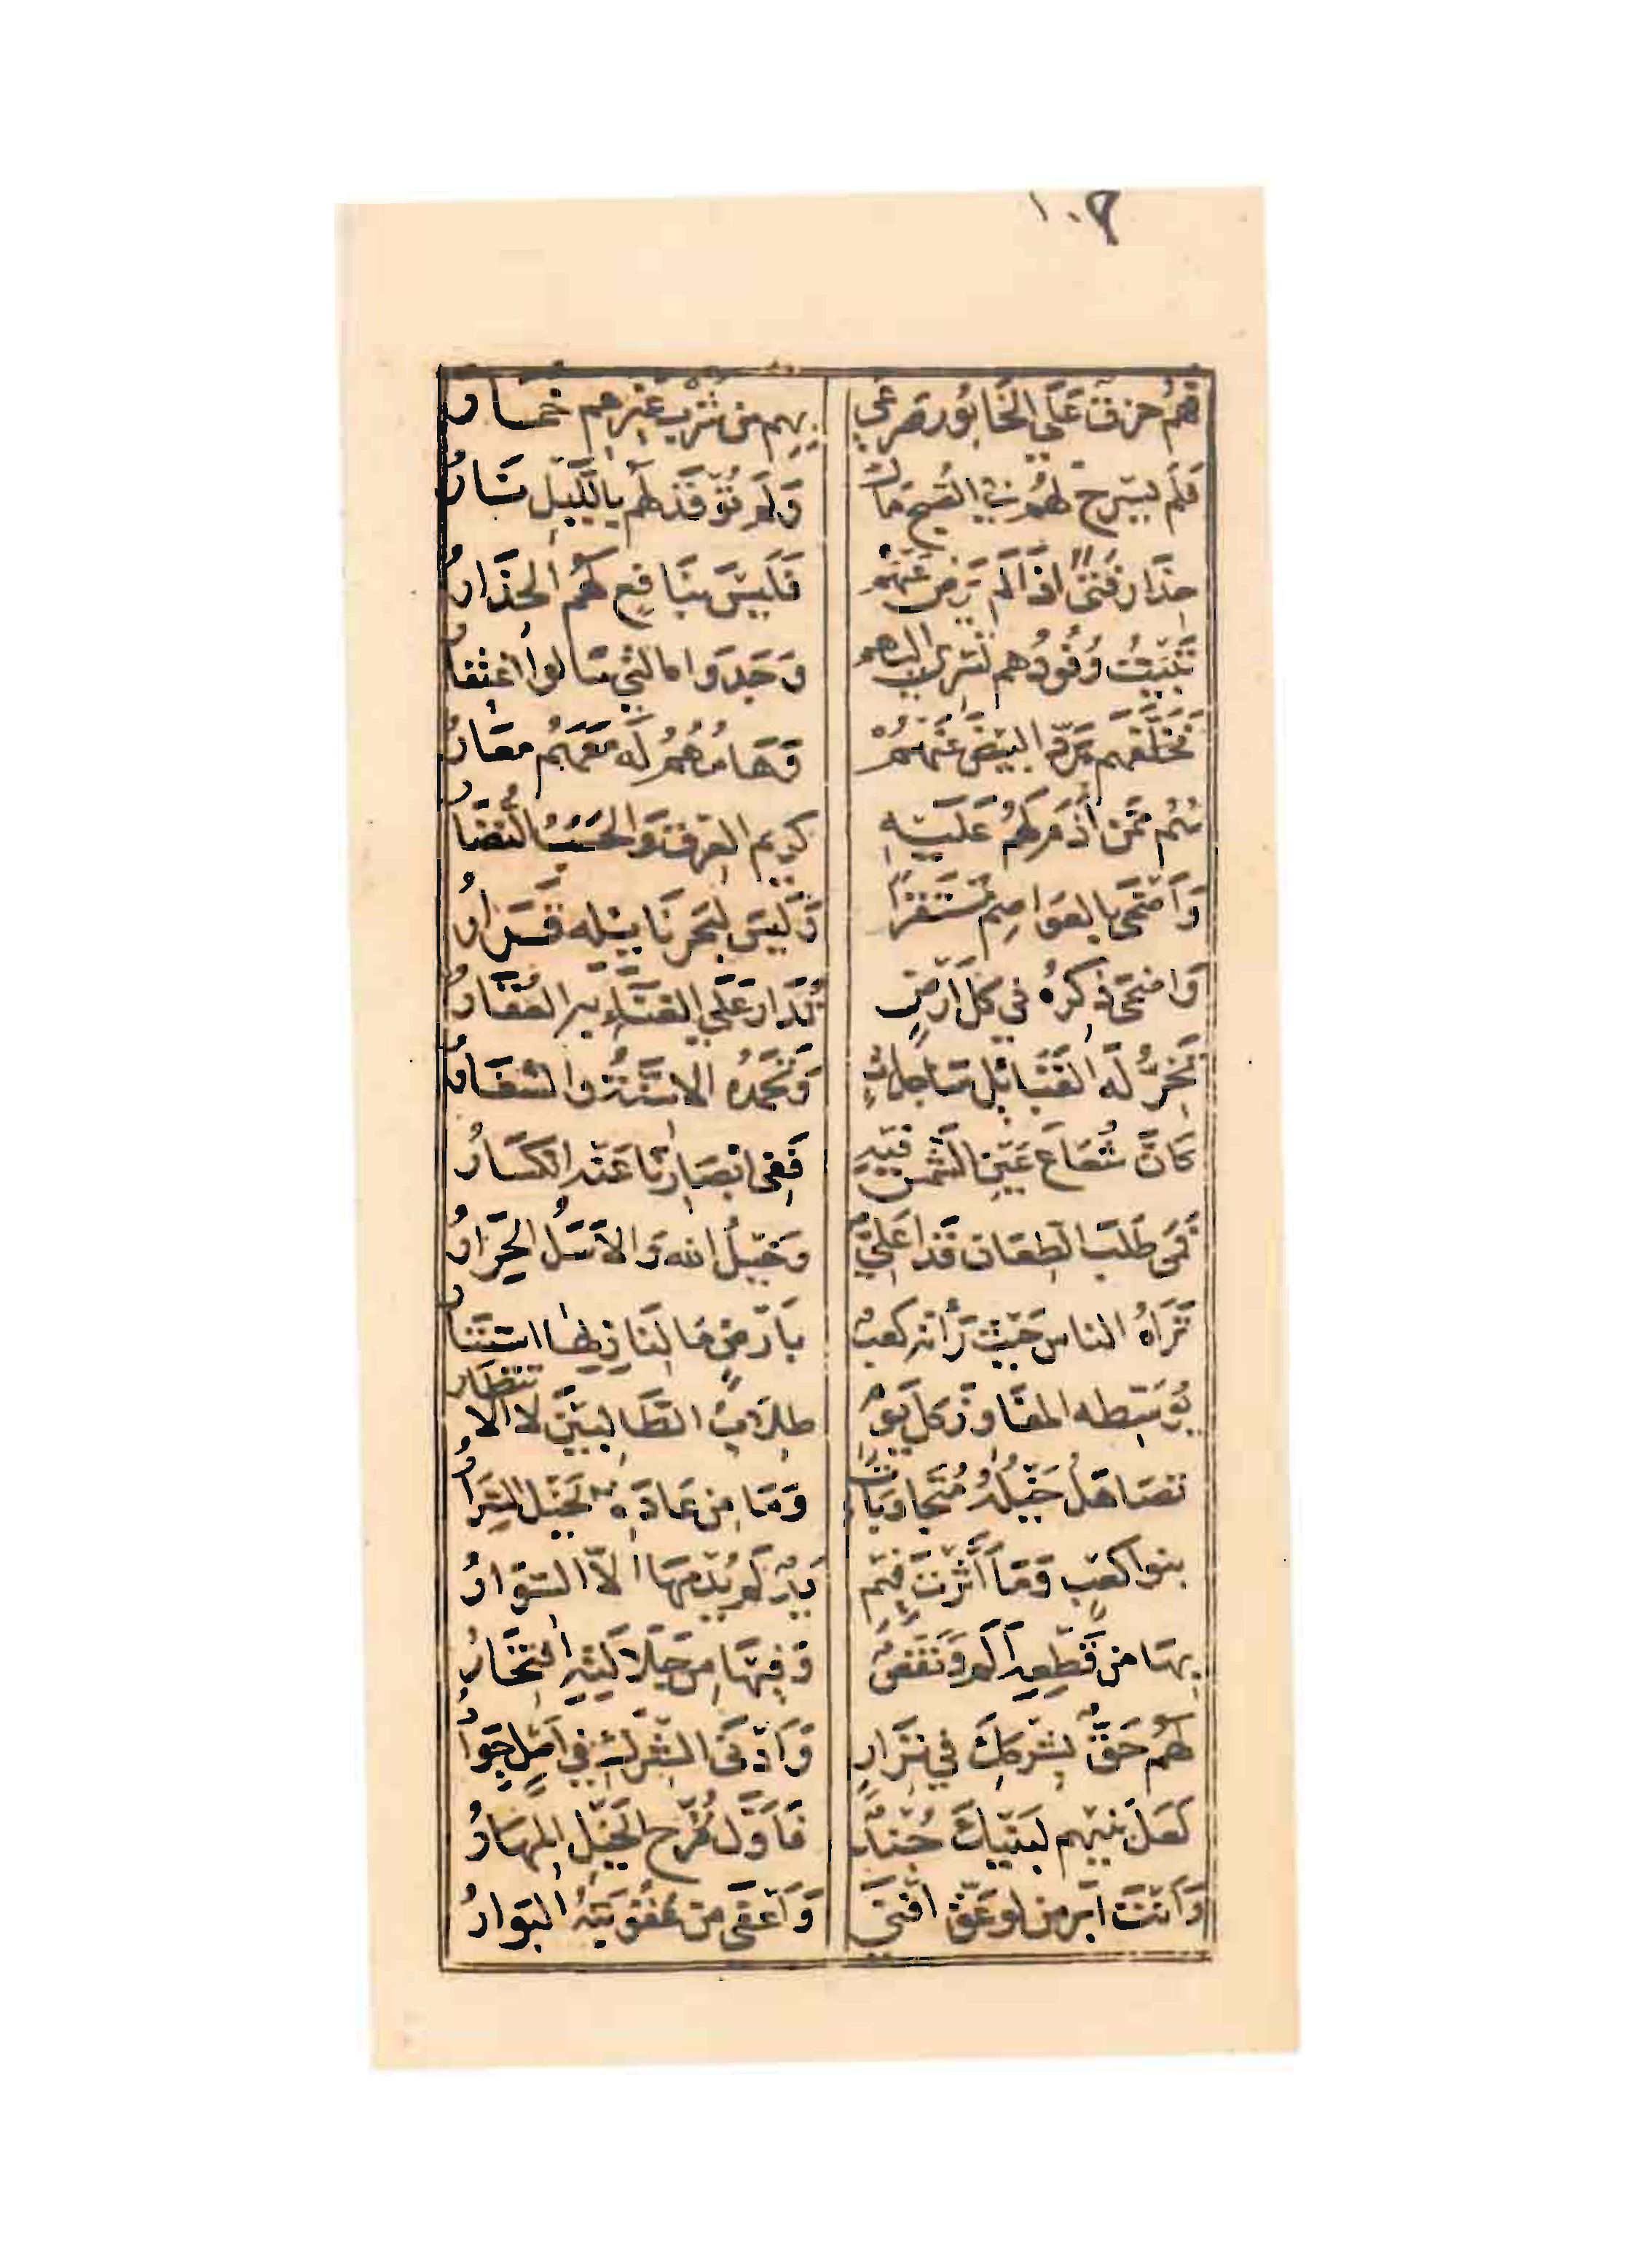 ١٠٩
فَهُمُ حِزَقٌ عَلَى الخَابُورِ صَرعَى بِهِم مِن شُربِ غَيرِهِم خُمَارُ
فَلَم يَسرَح لَهُم فِي الصُبحِ مَالٌ وَلَم تُوقَد لَهُم بِاللَّيلِ نَارُ
حِذَارَ فَتًى اذَا لَم يَرضَ عَنهُم فَلَيسَ بِنَافِعٍ لَهُمُ الحِذَارُ
تَبِيتُ وُفُودُهُم تَسرِي اليهم وَجَدوَاه التي سَالوا اغتفارُ
فَخَلَّفَهُم بِرَدِّ البِيضِ عَنهُم وَهَامُهُمُ لَهُ مَعَهُم مُعَارُ
هُمُ مِمَّن أَذَمَّ لَهُم عَلَيهِ كريم العِرقِ وَالحَسَبُ النُضَارُ
وَأَضحَى بِالعَوَاصِمِ مُستَقِرًّا وَلَيسَ لِبَحرِ نَائِلِهِ قَرَارُ
وَاضحَى ذِكرُهُ فِي كُلِّ ارضٍ تُدَارُ عَلَى الغِنَاءِ بِهِ العُقَارُ
تَخِرُّ لَهُ القَبَائِلُ سَاجِدَاتٍ وَتَحمَدُهُ الاسِنَّةُ وَالشِفَارُ
كَأَنَّ شُعَاعَ عَينِ الشَّمسِ فِيهِ فَفِي ابصَارِنَا عَنهُ انكِسَارُ
فَمَن طَلَبَ الطِعَانَ فَذَا عَلِيٌّ وَخَيلُ الله وَالاَسَلُ الحِرَارُ
تَرَاهُ الناس حَيثُ رَأَته كَعبٌ بِأَرضٍ مَا لِنَازِلِهَا استِتَارُ
يُوَسِّطُه المفَاوِزَ كُلَّ يَومٍ طِلَابُ الطَّالِبِينَ لَا الانتظارُ
تَصَاهَلُ خَيلُهُ مُتَجَاوِبَاتٍ وَمَا مِن عَادَةِ الخَيلِ السِرَارُ
بنوا كَعبٍ وَمَا أَثَّرتَ فِيهِم يَدٌ لَم يُدمِهَا الّا السِوَارُ
بِهَا مِن قَطعِهِ أَلَمٌ وَنَقصٌ وَفِيهَا مِن جَلَالَتِهِ افتِخَارُ
لَهُم حَقٌّ بِشِركِكَ فِي نِزَارٍ وَأَدنَى الشِركِ فِي أَصلٍ جِوَارُ
لَعَلَّ بَنِيهِم لِبَنِيكَ جُندٌ فَأَوَّلُ قُرَّحِ الخَيلِ المِهَارُ
وَأَنتَ أَبَرُّ مَن لو عُقَّ أَفنَى وَأَعفَى مَن عُقُوبَتُهُ البَوَارُ